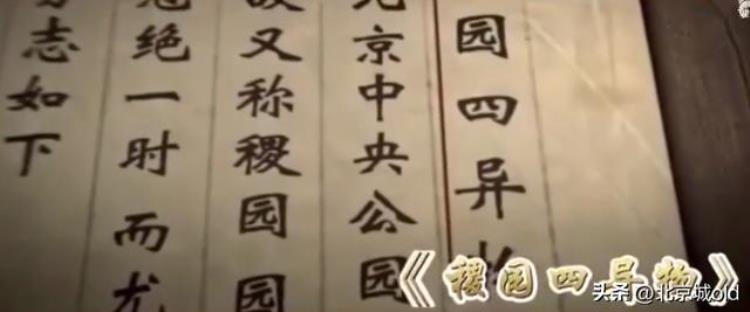 园四异
北京中央公园
故又称稷园园
绝一时而尤
志如下
《稷园四异物》
头条 @北京城old